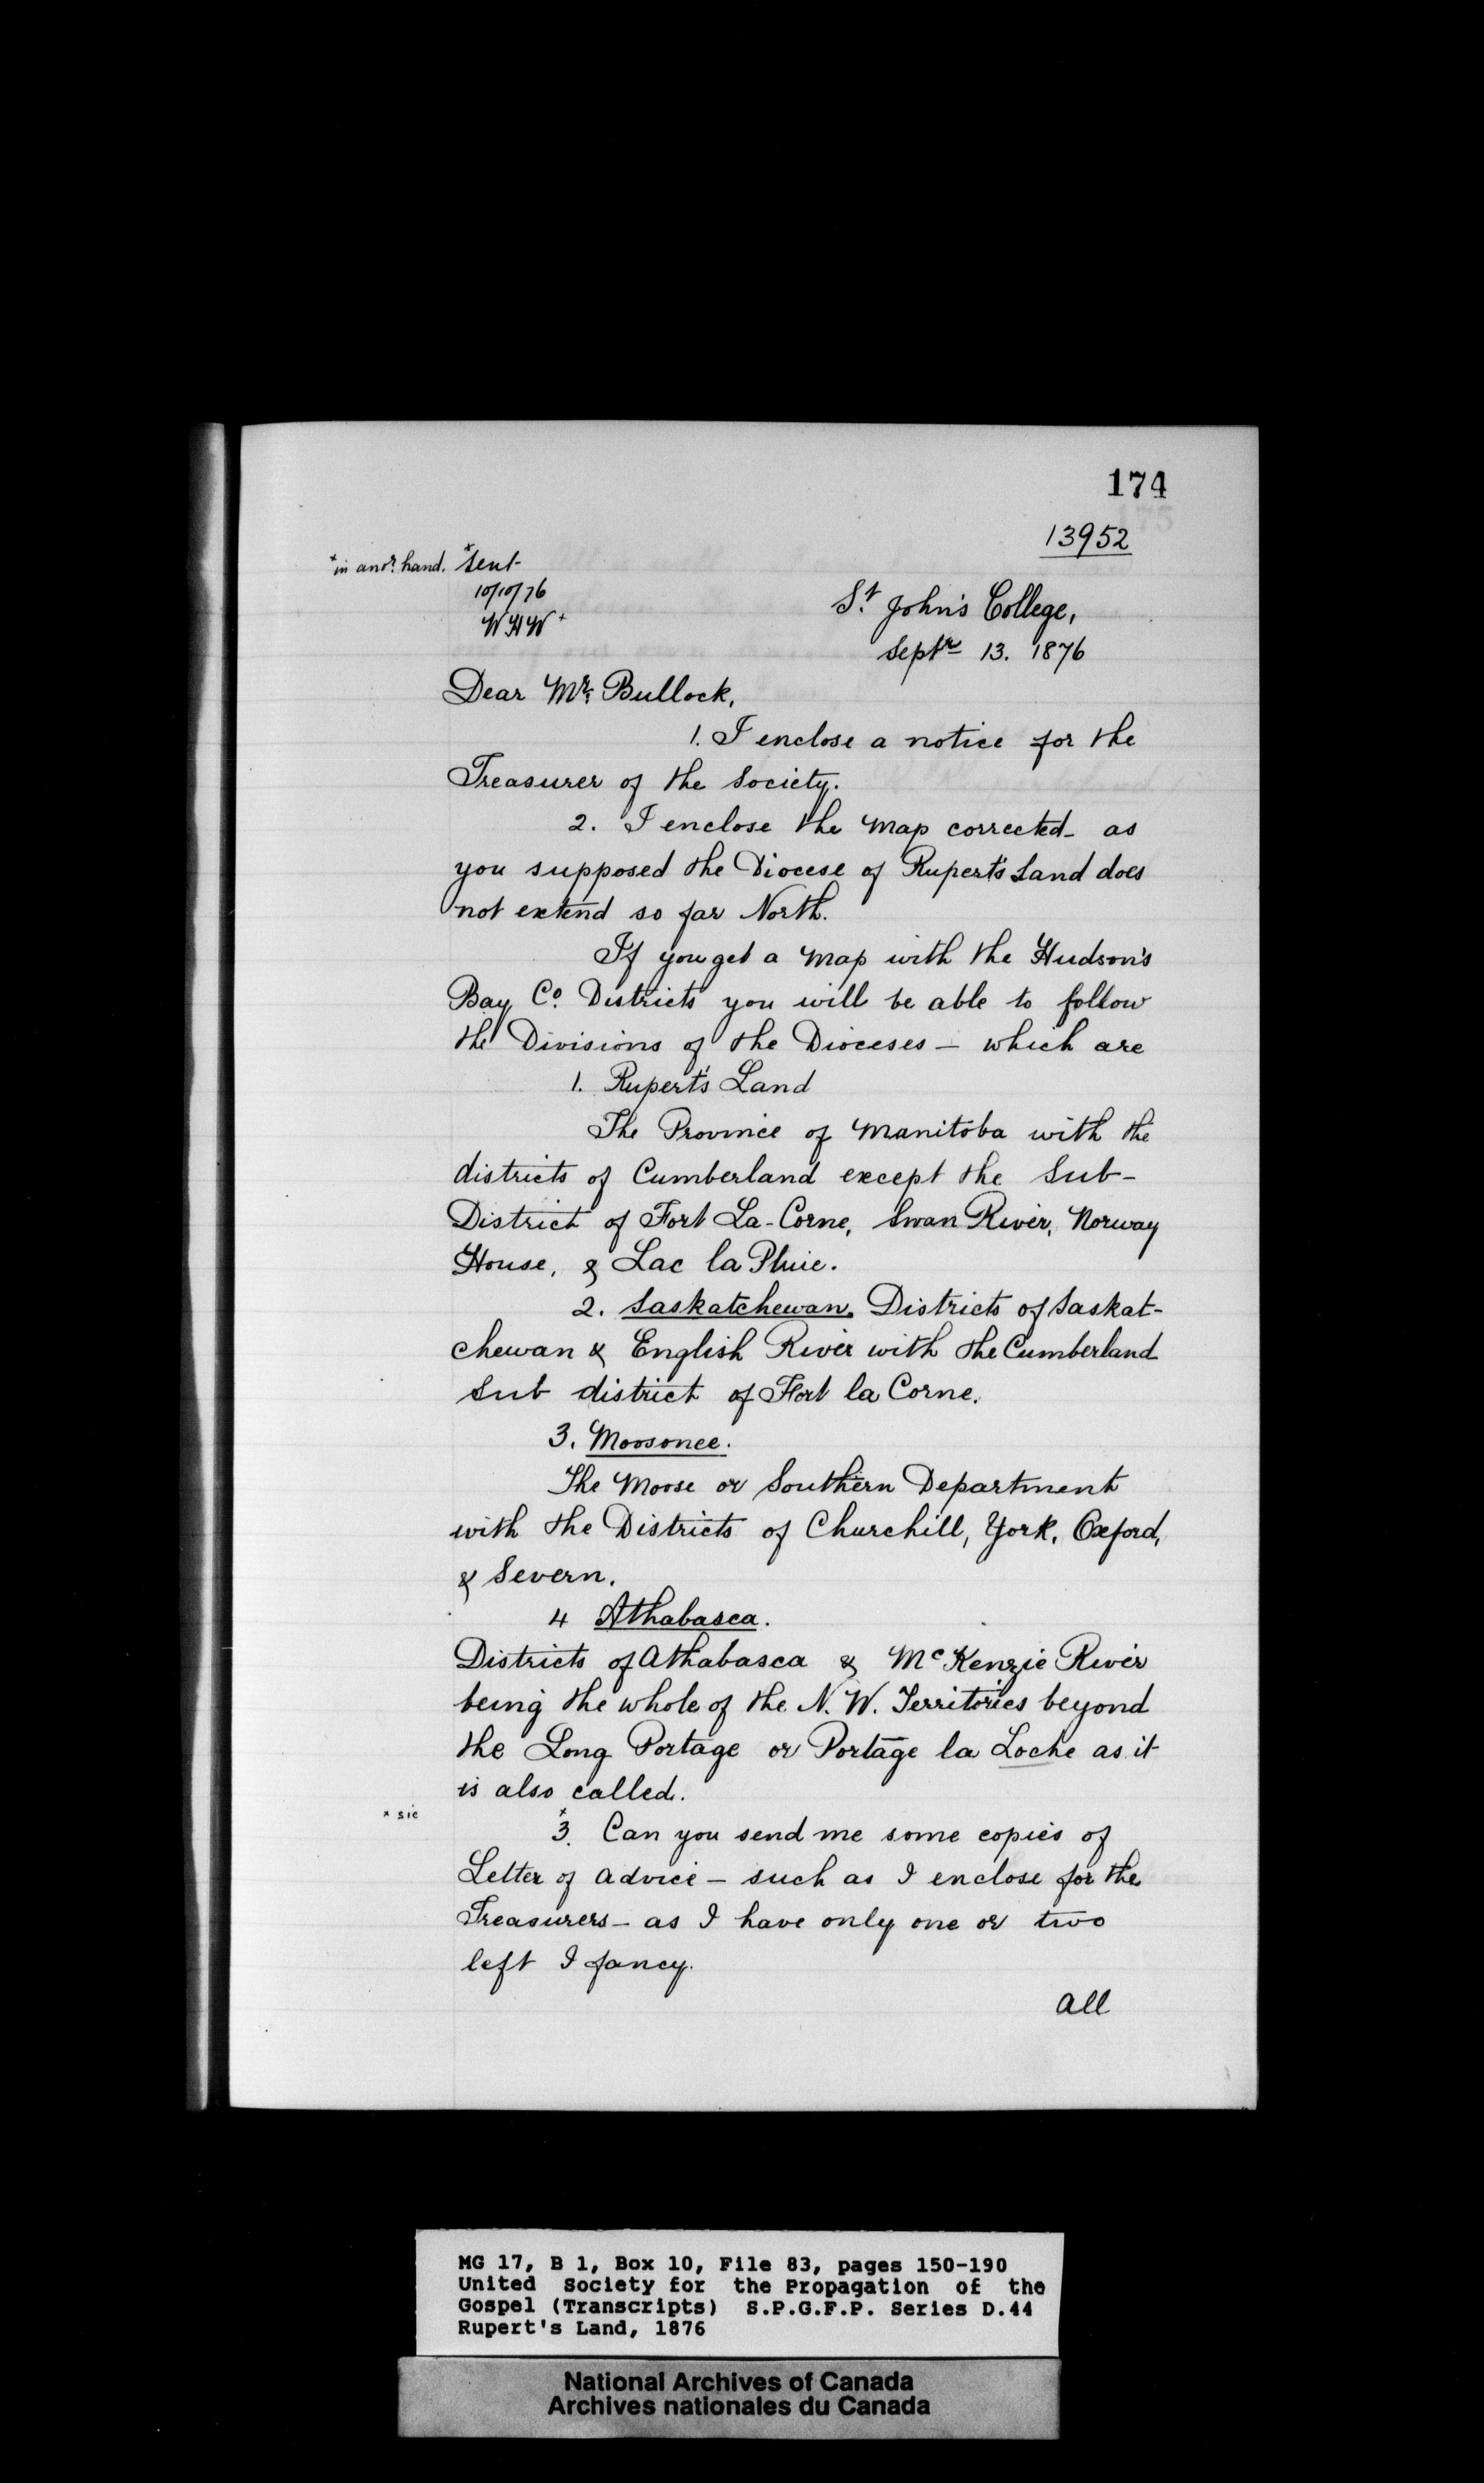 174
13952
× in anor. hand. × Sent
10/10/76
W H W ×
St. John's College,
Septr 13. 1876
Dear Mr. Bullock,
1. I enclose a notice for the
Treasurer of the Society.
2. I enclose the Map corrected – as
you supposed the Diocese of Rupert's Land does
not extend so far North.
If you get a Map with the Hudson's
Bay Co. Districts you will be able to follow
the Divisions of the Dioceses – which are
1. Rupert's Land
The Province of Manitoba with the
districts of Cumberland except the Sub-
District of Fort La-Corne, Swan River, Norway
House, & Lac la Pluie.
2. Saskatchewan. Districts of Saskat-
chewan & English River with the Cumberland
Sub district of Fort la Corne.
3. Moosonee.
The Moose or Southern Department
with the Districts of Churchill, York, Oxford,
& Severn.
4 Athabasca.
Districts of Athabasca & McKenzie River
being the whole of the N. W. Territories beyond
the Long Portage or Portage la Loche as it
is also called.
× sic
×3. Can you send me some copies of
Letter of Advice – such as I enclose for the
Treasurers – as I have only one or two
left I fancy.
All
MG 17, B 1, Box 10, File 83, pages 150-190
United Society for the Propagation of the
Gospel (Transcripts) S.P.G.F.P. Series D.44
Rupert's Land, 1876
National Archives of Canada
Archives nationales du Canada